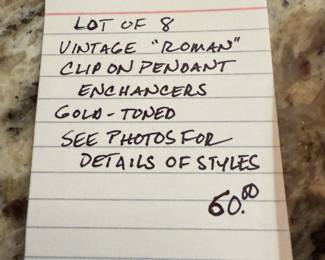 LOT OF 8
VINTAGE "ROMAN"
CLIP ON PENDANT
ENCHANCERS
GOLD-TONED
SEE PHOTOS FOR
DETAILS OF STYLES
60.00